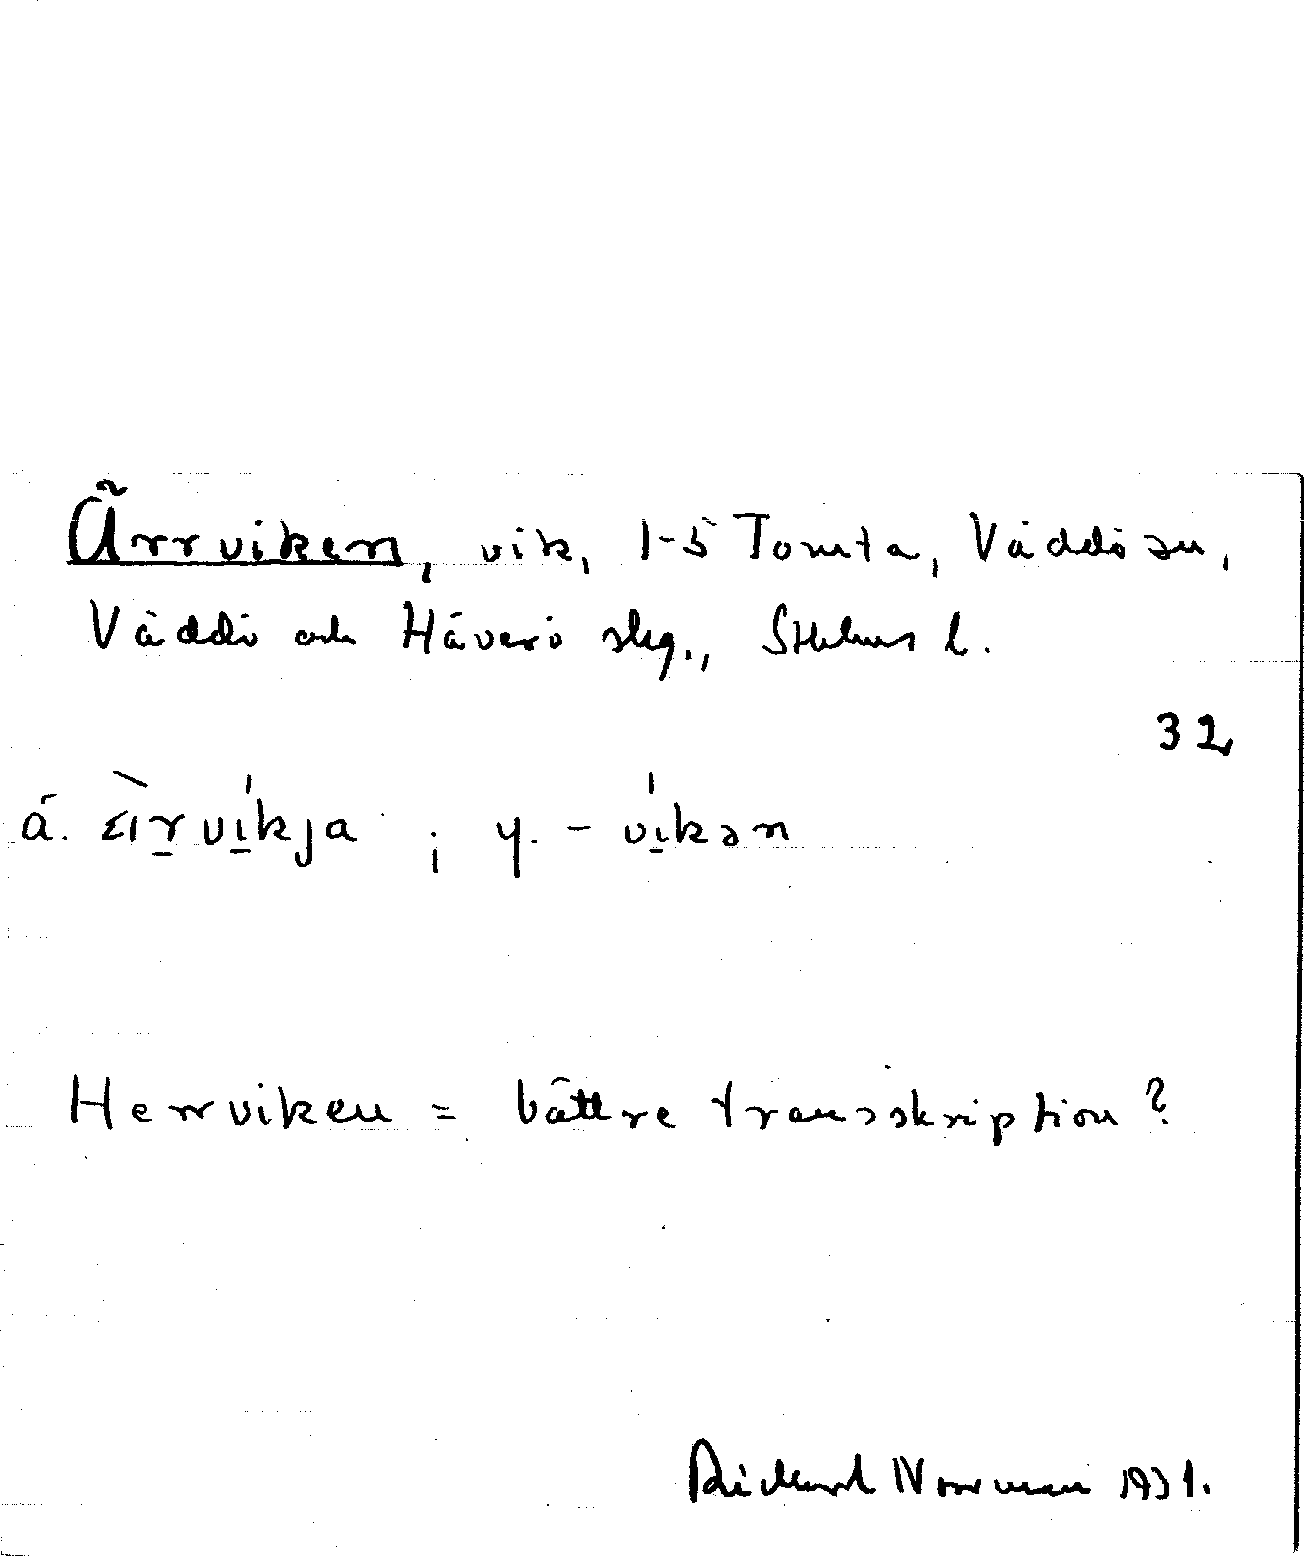 Ärrviken, vik, 1-5 Tomta, Väddö sn,
Väddö och Häverö skg., Sthlms l.
32
ä. ä̀rvíkja ; y. - víkən
Herrviken = bättre transskription?
Rickard Norman 1931.